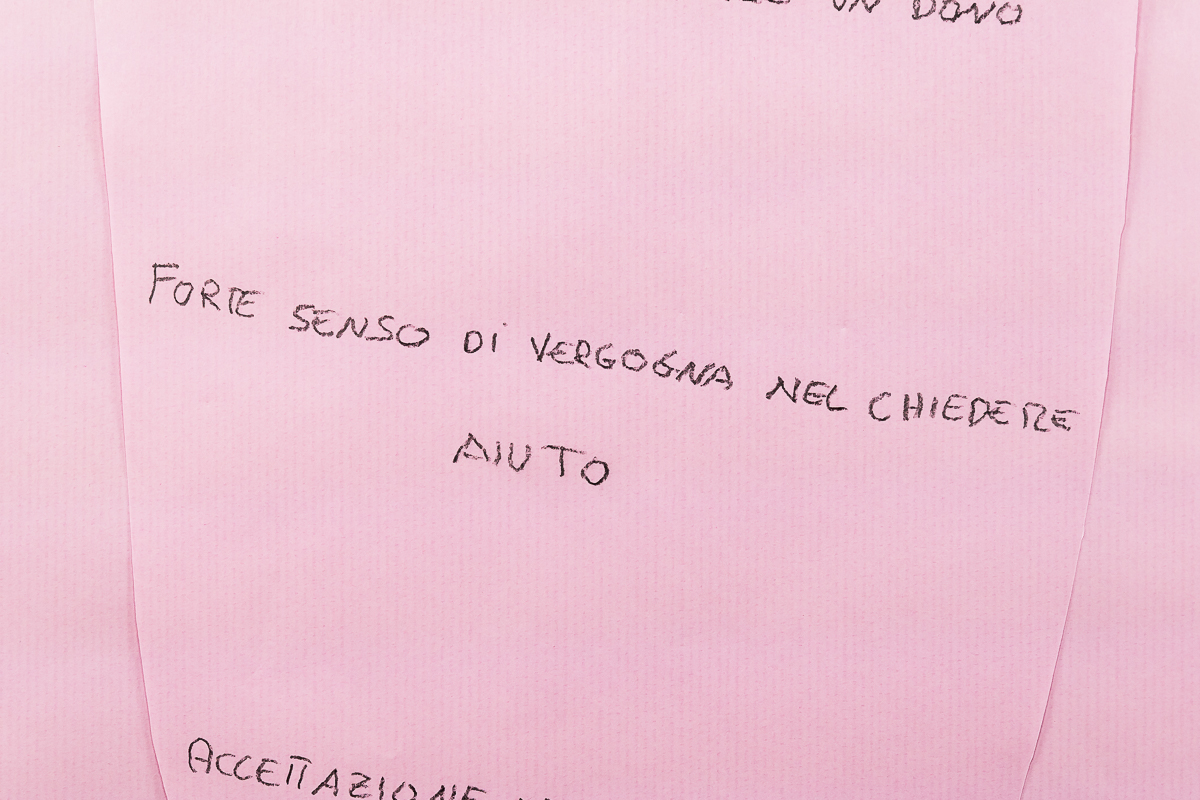 UN DONO
FORTE SENSO DI VERGOGNA NEL CHIEDERE
AIUTO
ACCETTAZIONE